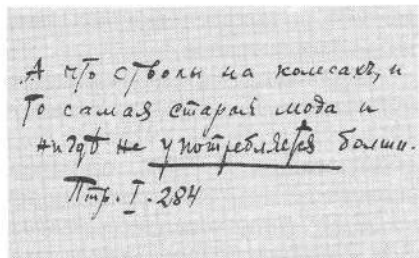 А что стволы на колесахъ, и
то самая старая мода и
нигдѣ не употребляется болши.
Птр. I. 284